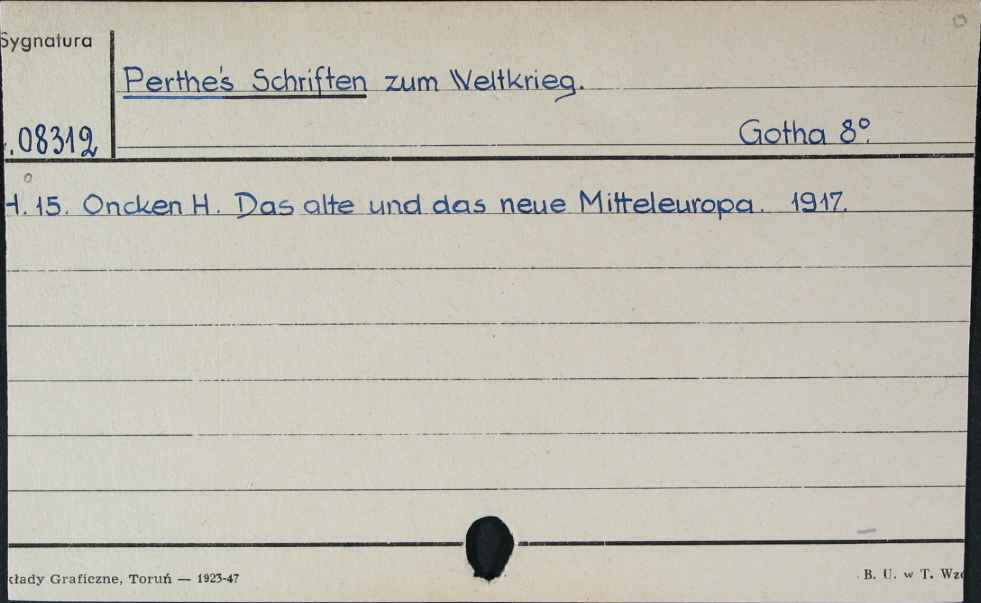 Sygnatura
Perthe's Schriften zum Weltkrieg.
08312
Gotha 8°.
H. 15. Oncken H. Das alte und das neue Mitteleuropa. 1917.
kłady Graficzne, Toruń — 1923-47
B. U. w T. Wzó